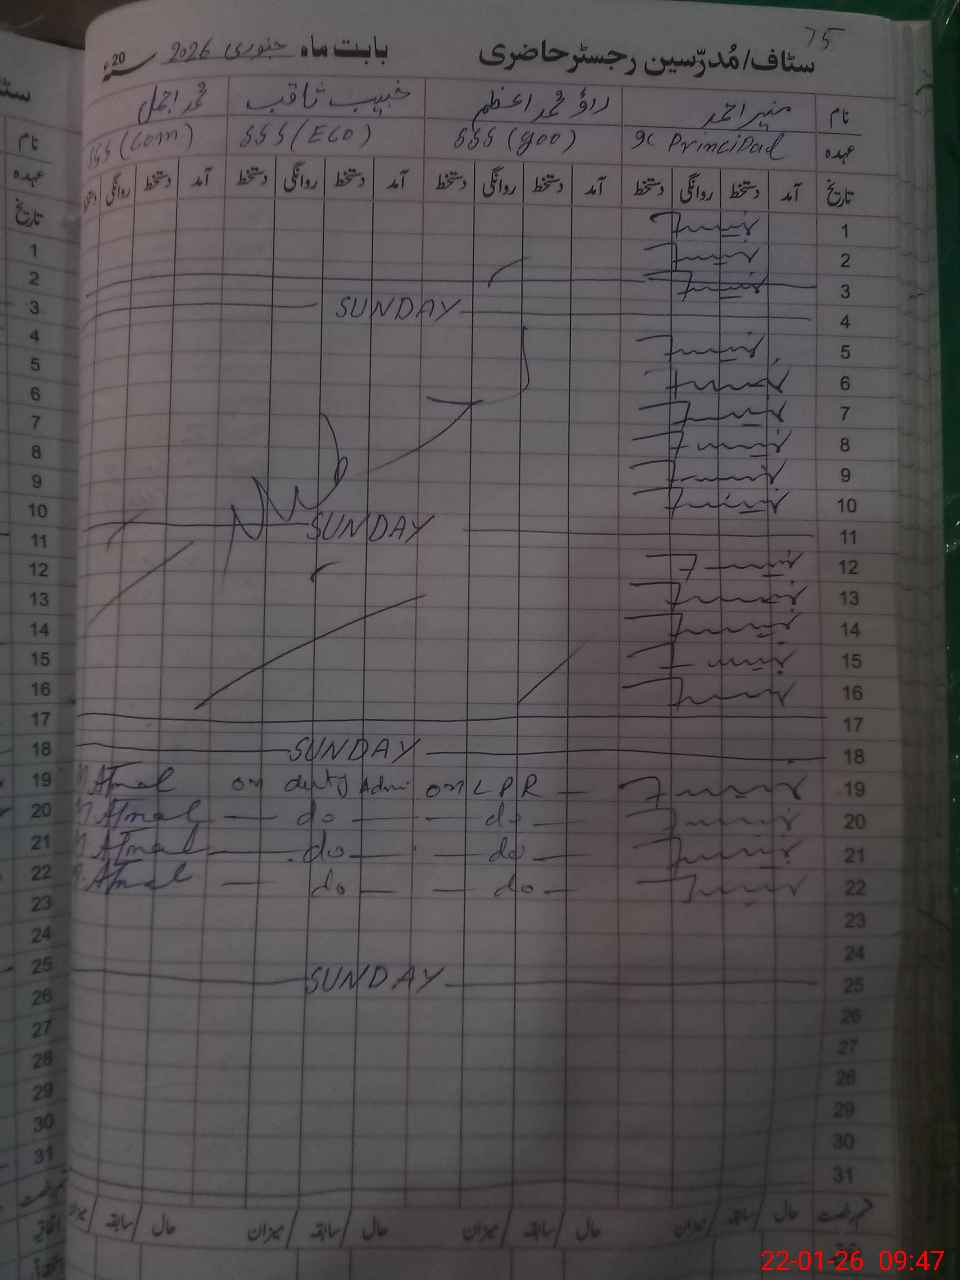 75
سٹاف/مُدرّسین رجسٹرحاضری بابت ماہ جنوری 2026 سنہ 20ء
نام منیر احمد راؤ محمد اعظم خبیب ثاقب محمد اجمل
عہدہ Principal SSS (geo) SSS (ECO) SSS (Com)
تاریخ آمد دستخط روانگی دستخط آمد دستخط روانگی دستخط آمد دستخط روانگی دستخط آمد دستخط روانگی
1
2
3
4 SUNDAY
5
6
7
8
9
10
11 SUNDAY
12
13
14
15
16
17
18 SUNDAY
19 on LPR — on duty Admi M Ajmal
20 — do — — do — M Ajmal
21 — do — — do — M Ajmal
22 — do — — do — M Ajmal
23
24
25 SUNDAY
26
27
28
29
30
31
حال / سابقہ / میزان حال / سابقہ / میزان حال / سابقہ / میزان حال / سابقہ
نام
عہدہ
تاریخ
1
2
3
4
5
6
7
8
9
10
11
12
13
14
15
16
17
18
19
20
21
22
23
24
25
26
27
28
29
30
31
22-01-26 09:47